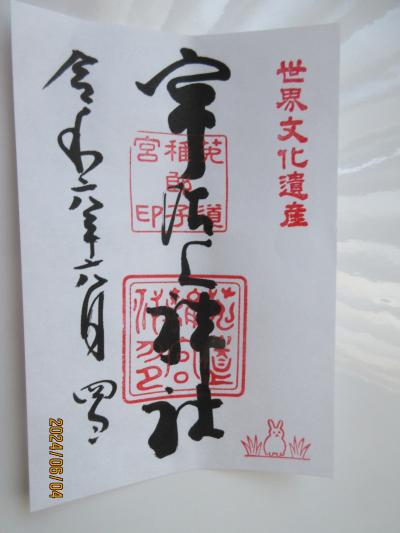 世界文化遺産
宇治上神社
菟道
稚郎子
宮印
令和六年六月四日
2024/06/04